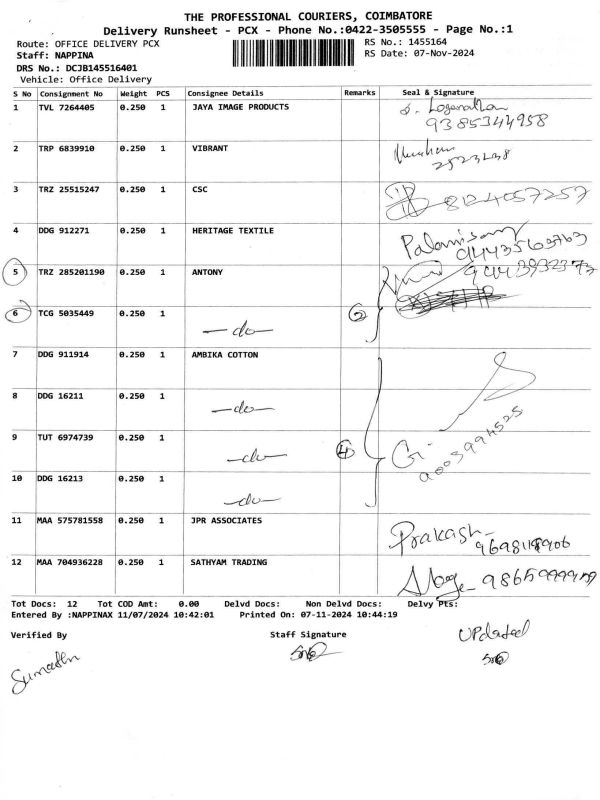 THE PROFESSIONAL COURIERS, COIMBATORE
Delivery Runsheet - PCX - Phone No.:0422-3505555 - Page No.:1
Route: OFFICE DELIVERY PCX RS No.: 1455164
Staff: NAPPINA RS Date: 07-Nov-2024
DRS No.: DCJB145516401
Vehicle: Office Delivery
S No Consignment No Weight PCS Consignee Details Remarks Seal & Signature
1 TVL 7264405 0.250 1 JAYA IMAGE PRODUCTS
9385344958
2 TRP 6839910 0.250 1 VIBRANT
3 TRZ 25515247 0.250 1 CSC 8124057257
4 DDG 912271 0.250 1 HERITAGE TEXTILE Palanisamy
9443563763
5 TRZ 285201190 0.250 1 ANTONY
6 TCG 5035449 0.250 1 -do- 2
7 DDG 911914 0.250 1 AMBIKA COTTON
8 DDG 16211 0.250 1 -do-
9 TUT 6974739 0.250 1 -do- 4
9003994525
10 DDG 16213 0.250 1 -do-
11 MAA 575781558 0.250 1 JPR ASSOCIATES Prakash
12 MAA 704936228 0.250 1 SATHYAM TRADING
Tot Docs: 12 Tot COD Amt: 0.00 Delvd Docs: Non Delvd Docs: Delvy Pts:
Entered By :NAPPINAX 11/07/2024 10:42:01 Printed On: 07-11-2024 10:44:19
Verified By Staff Signature Updated